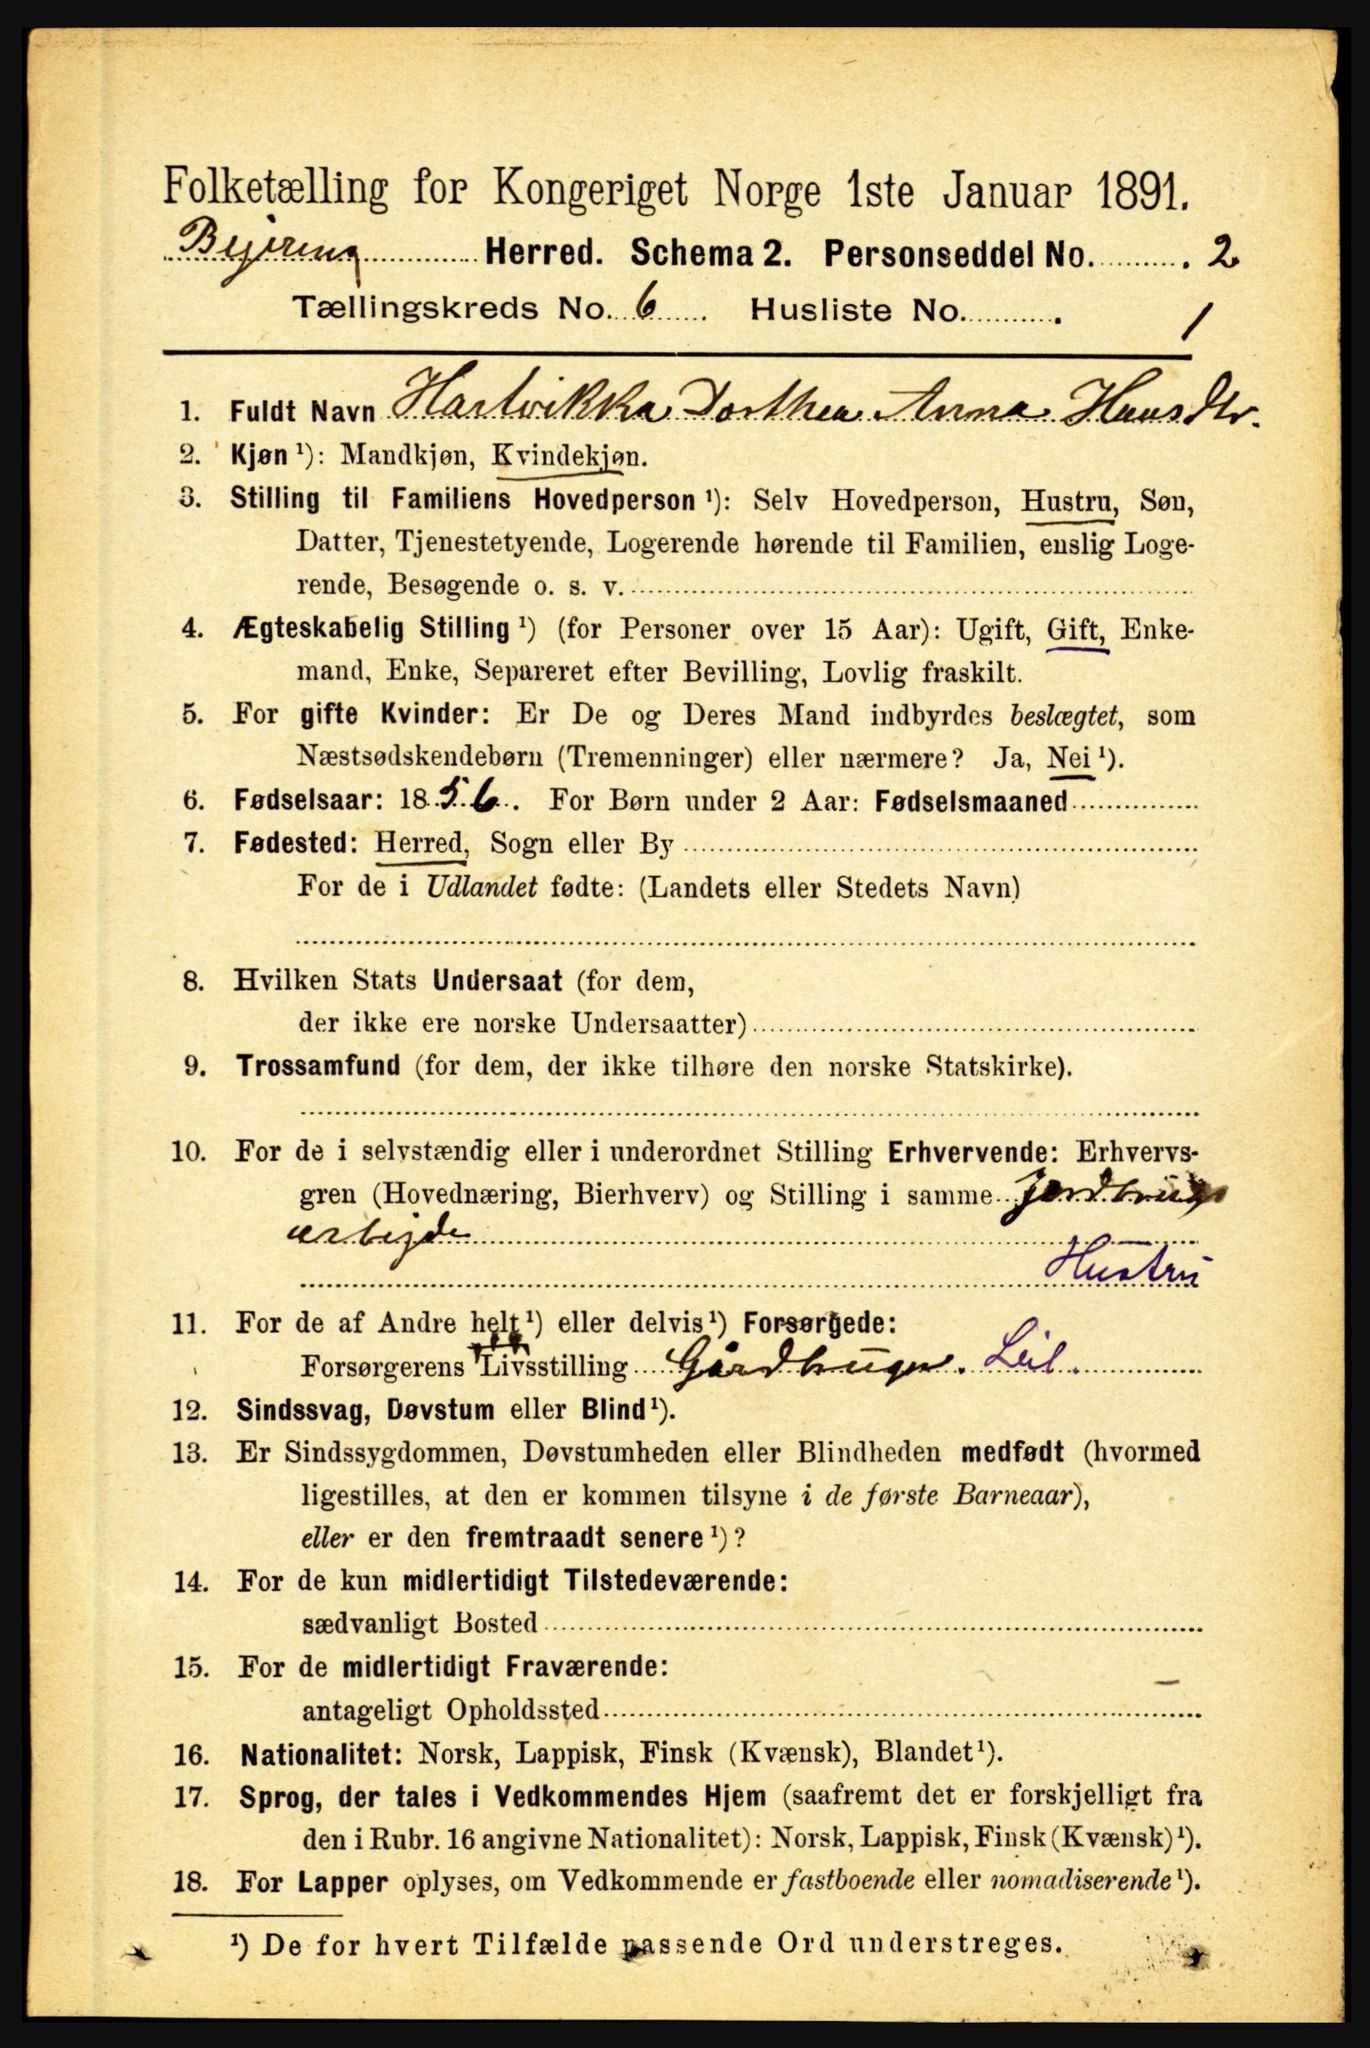 Folketælling for Kongeriget Norge 1ste Januar 1891.
Bejeren Herred. Schema 2. Personseddel No. 2
Tællingskreds No. 6. Husliste No. 1
1. Fuldt Navn Hartvikka Dorthea Anna Hansdtr.
2. Kjøn ¹): Mandkjøn, Kvindekjøn.
3. Stilling til Familiens Hovedperson ¹): Selv Hovedperson, Hustru, Søn,
Datter, Tjenestetyende, Logerende hørende til Familien, enslig Loge-
rende, Besøgende o. s. v.
4. Ægteskabelig Stilling ¹) (for Personer over 15 Aar): Ugift, Gift, Enke-
mand, Enke, Separeret efter Bevilling, Lovlig fraskilt.
5. For gifte Kvinder: Er De og Deres Mand indbyrdes beslægtet, som
Næstsødskendebørn (Tremenninger) eller nærmere? Ja, Nei ¹).
6. Fødselsaar: 1856. For Børn under 2 Aar: Fødselsmaaned
7. Fødested: Herred, Sogn eller By
For de i Udlandet fødte: (Landets eller Stedets Navn)
8. Hvilken Stats Undersaat (for dem,
der ikke ere norske Undersaatter)
9. Trossamfund (for dem, der ikke tilhøre den norske Statskirke).
10. For de i selvstændig eller i underordnet Stilling Erhvervende: Erhvervs-
gren (Hovednæring, Bierhverv) og Stilling i samme Jordbrugs
arbejde
Hustru
11. For de af Andre helt ¹) eller delvis ¹) Forsørgede:
Forsørgerens Livsstilling Gårdbruger. Leil.
12. Sindssvag, Døvstum eller Blind ¹).
13. Er Sindssygdommen, Døvstumheden eller Blindheden medfødt (hvormed
ligestilles, at den er kommen tilsyne i de første Barneaar),
eller er den fremtraadt senere ¹)?
14. For de kun midlertidigt Tilstedeværende:
sædvanligt Bosted
15. For de midlertidigt Fraværende:
antageligt Opholdssted
16. Nationalitet: Norsk, Lappisk, Finsk (Kvænsk), Blandet ¹).
17. Sprog, der tales i Vedkommendes Hjem (saafremt det er forskjelligt fra
den i Rubr. 16 angivne Nationalitet): Norsk, Lappisk, Finsk (Kvænsk) ¹).
18. For Lapper oplyses, om Vedkommende er fastboende eller nomadiserende ¹).
¹) De for hvert Tilfælde passende Ord understreges.